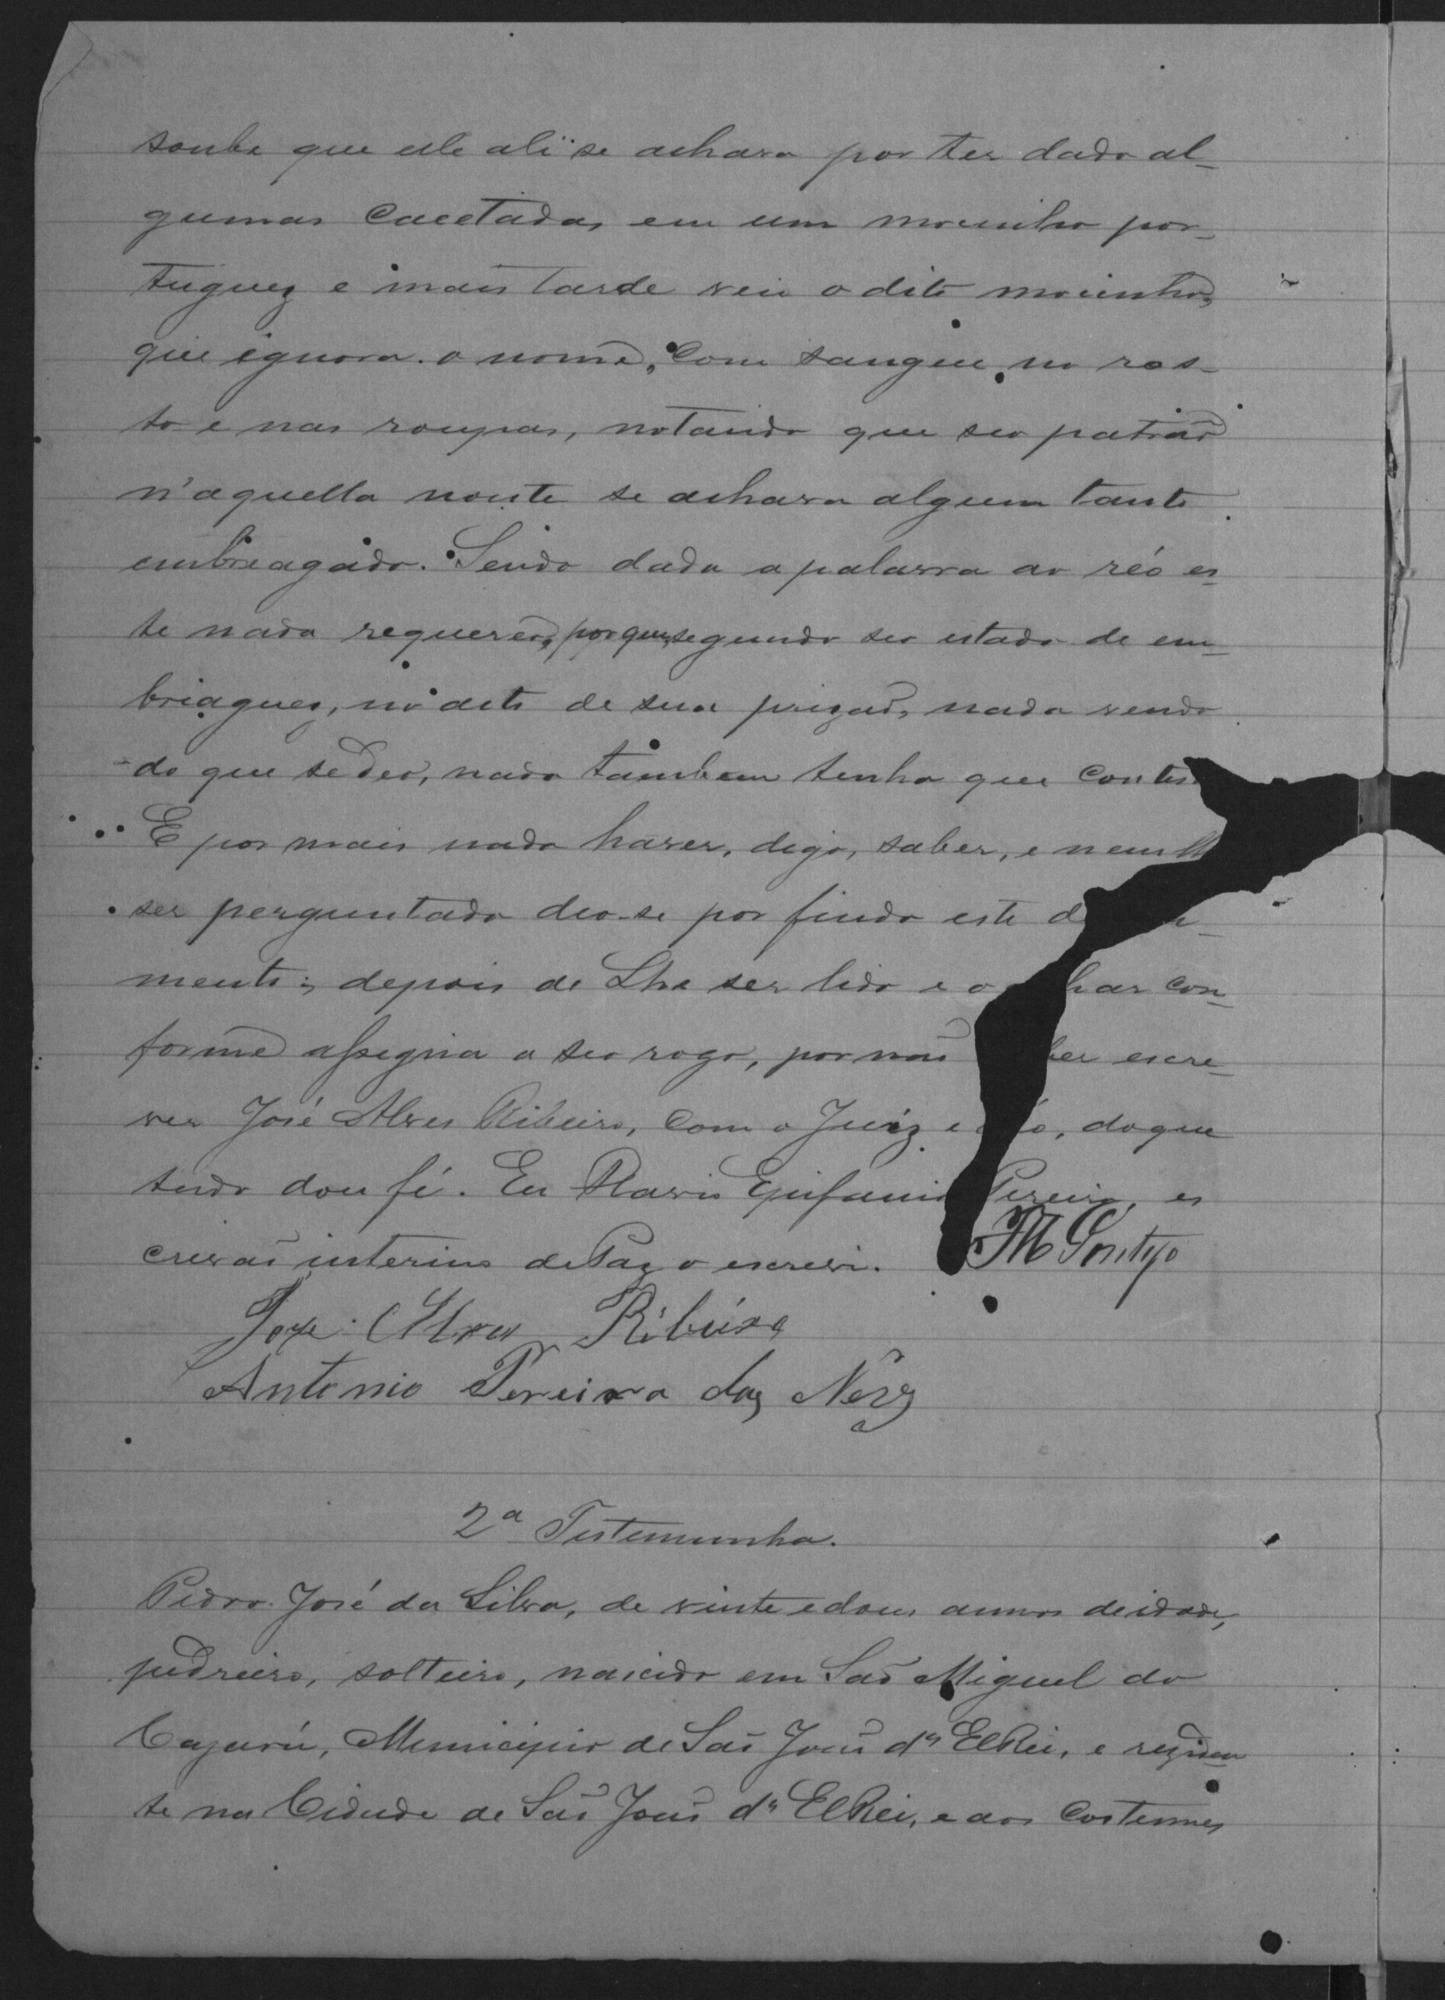 soube que ele ali se achava por ter dado al-
gumas cacetadas em um mocinho por-
tuguez e mais tarde veio o dito mocinho,
que ignora o nome, com sangue no ros-
to e nas roupas, notando que seo patrão
n'aquella noute se achava algum tanto
embreagado. Sendo dada a palavra ao réo es-
te nada requereo, porque, segundo seo estado de em-
briaguez, no acto de sua prizaõ, nada vendo
do que se deo, nada tambem tenha que contes
E por mais nada haver, digo, saber, e nem lh
ser perguntado deo-se por findo este d
mento; depois de Lhe ser lido e o har con-
forme assigna a seo rogo, por naõ ber escre-
ver José Alves Ribeiro, com o Juiz e o, do que
tudo dou fé. Eu Flavio Epifanio Pereira, es
crivaõ interino de Paz o escrevi. JM Gontijo
Jose Alves Ribeiro
Antonio Pereira das Nevz
2ª Testemunha.
Pedro José da Silva, de vinte e dous annos de idade,
pedreiro, solteiro, nascido em Saõ Miguel do
Cajurú, Municipio de Saõ Joaõ d'El Rei, e reziden
te na Cidade de Saõ Joaõ d'El Rei, e aos costumes